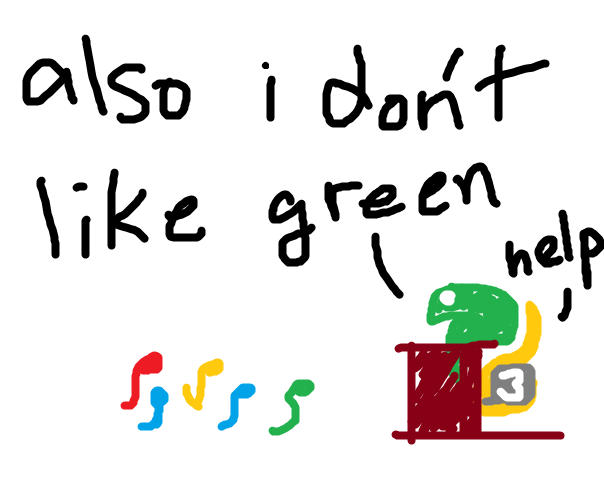 also i don't
like green
help
3